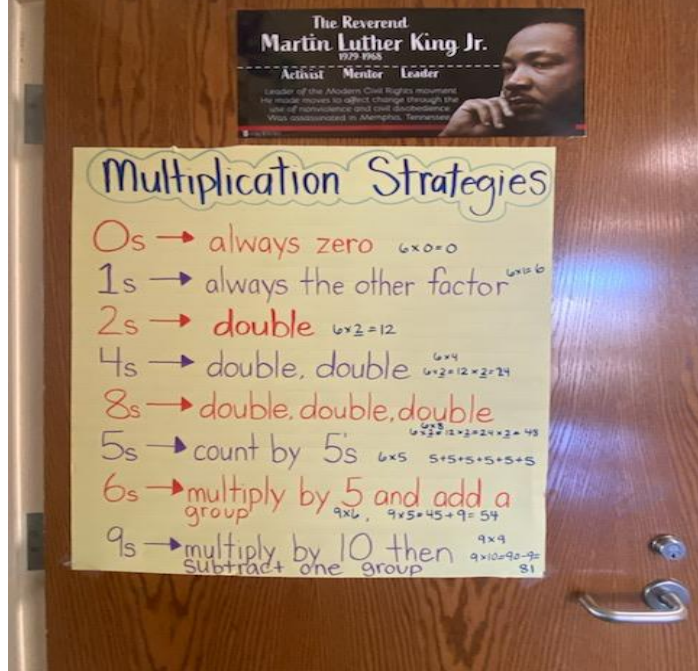 The Reverend
Martin Luther King Jr.
1929-1968
Activist Mentor Leader
Leader of the Modern Civil Rights movment
He made moves to affect change through the
use of nonviolence and civil disobedience
Was assassinated in Memphis, Tennessee
Multiplication Strategies
0s → always zero 6x0=0
1s → always the other factor 6x1=6
2s → double 6x2=12
4s → double, double 6x4
6x2=12x2=24
8s → double, double, double
6x8
6x2=12x2=24x2=48
5s → count by 5's 6x5 5+5+5+5+5+5
6s → multiply by 5 and add a
group 9x6, 9x5=45+9=54
9s → multiply by 10 then 9x9
9x10=90-9=
subtract one group 81